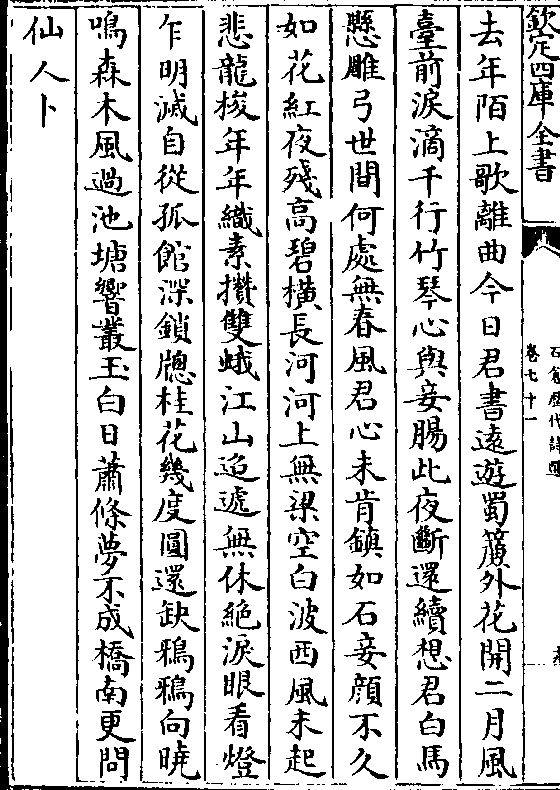 欽定四庫全書
石倉歷代詩選
卷七十一
去年陌上歌離曲今日君書遠遊蜀簷外花開二月風
臺前淚滴千行竹琴心與妾腸此夜斷還續想君白馬
懸雕弓世間何處無春風君心未肯鎮如石妾顏不久
如花紅夜殘高碧橫長河河上無梁空白波西風未起
悲龍梭年年織素攢雙蛾江山迢遞無休絕淚眼看燈
乍明滅自從孤館深鎖牕桂花幾度圓還缺鴉鴉向曉
鳴森木風過池塘響叢玉白日蕭條夢不成橋南更問
仙人卜